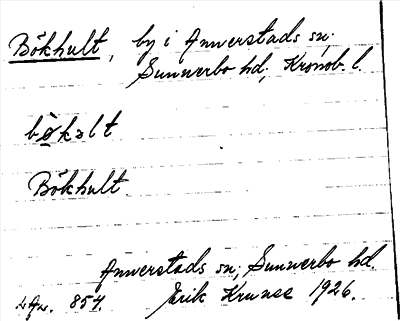 Bökhult, by i Annerstads sn,
Sunnerbo hd, Kronob. l.
bøkəlt
Bökhult
Annerstads sn, Sunnerbo hd.
854. Erik Kruuse 1926.